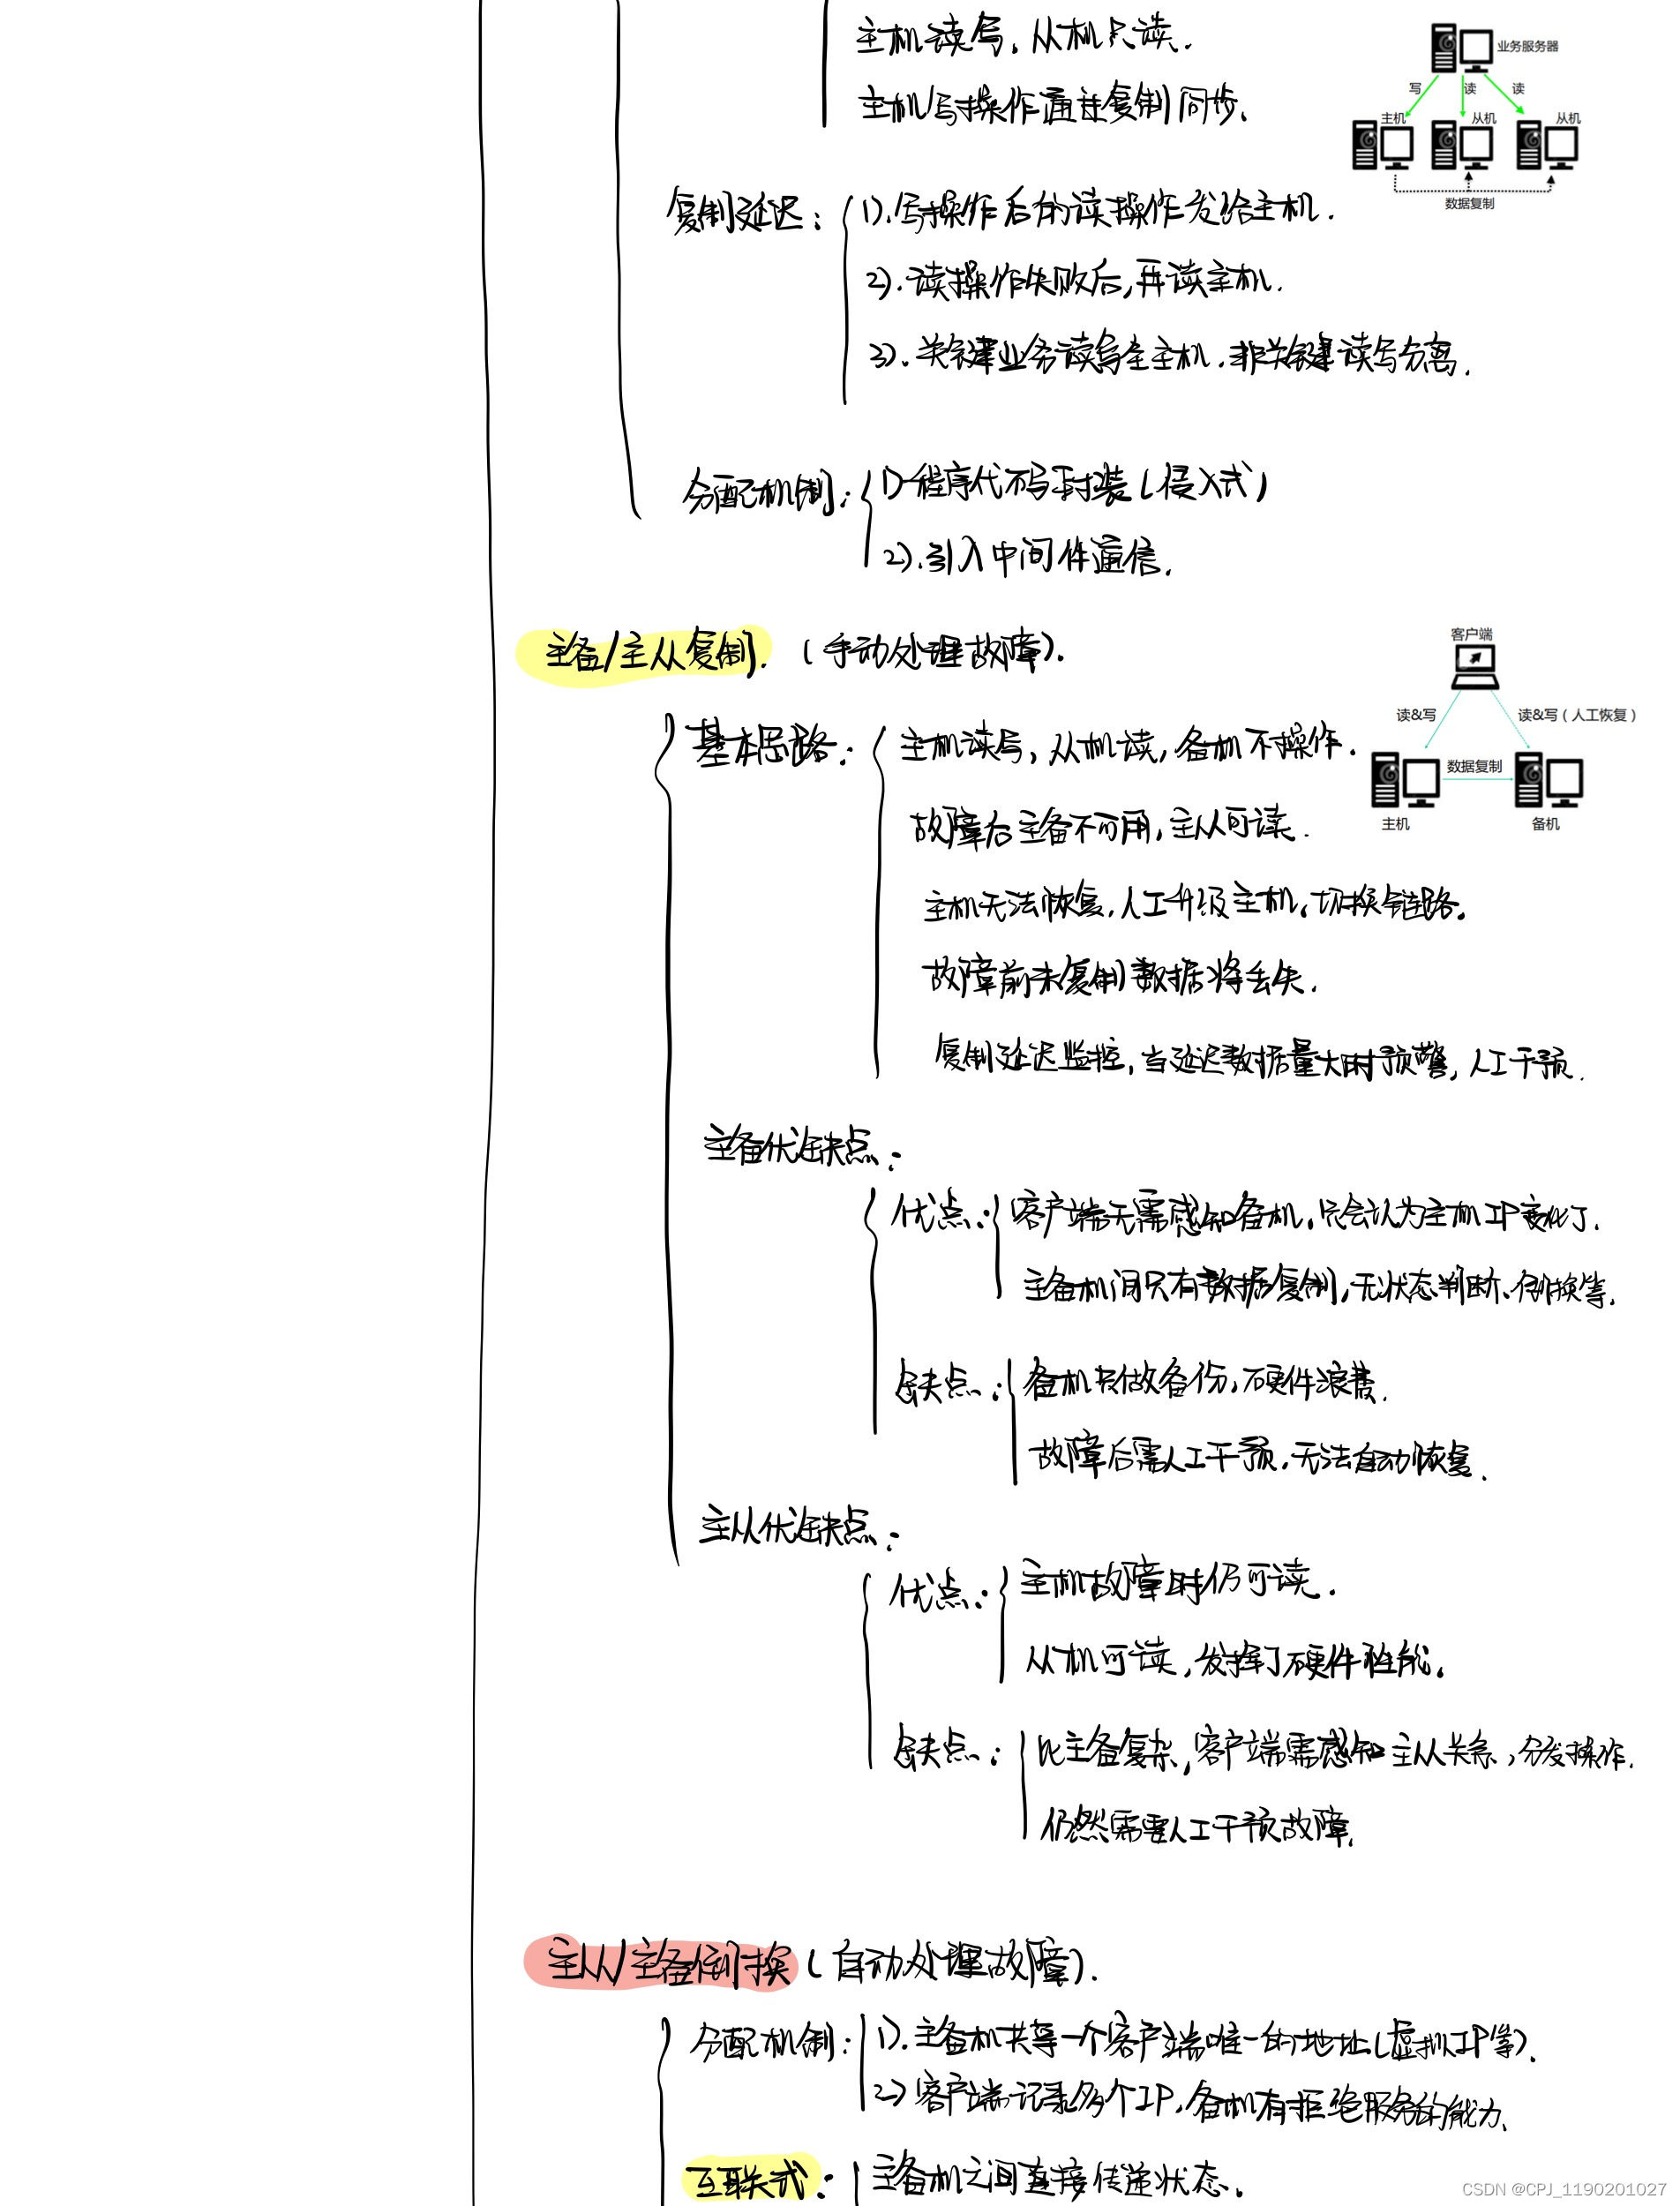 主机读写，从机只读.
主机写操作通过复制同步.
业务服务器
写 读 读
主机 从机 从机
数据复制
复制延迟：
1).写操作后的读操作发给主机.
2).读操作失败后,再读主机.
3).关键业务读写全主机.非关键读写分离.
分配机制：
1)程序代码封装(侵入式)
2).引入中间件通信.
主备/主从复制.（手动处理故障）.
客户端
读&写 读&写（人工恢复）
数据复制
主机 备机
基本思路：
主机读写，从机读，备机不操作.
故障后主备不可用，主从可读.
主机无法恢复，人工升级主机，切换链路.
故障前未复制数据将丢失.
复制延迟监控，当延迟数据量大时预警，人工干预.
主备优缺点：
优点：
客户端无需感知备机，只会认为主机IP变化了.
主备机间只有数据复制，无状态判断、倒换等.
缺点：
备机只做备份，硬件浪费.
故障后需人工干预，无法自动恢复.
主从优缺点：
优点：
主机故障时仍可读.
从机可读，发挥了硬件性能.
缺点：
比主备复杂，客户端需感知主从关系，分发操作.
仍然需要人工干预故障.
主从/主备倒换（自动处理故障）.
分配机制：
1).主备机共享一个客户端唯一的地址(虚拟IP等).
2)客户端记录多个IP，备机有拒绝服务的能力.
互联式：
主备机之间直接传递状态.
CSDN @CPJ_1190201027